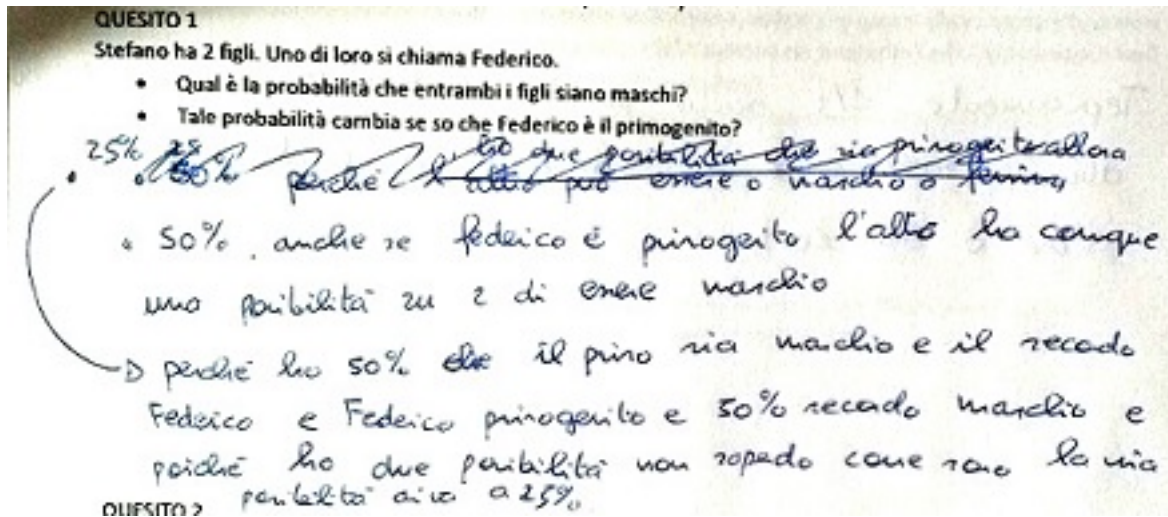 QUESITO 1
Stefano ha 2 figli. Uno di loro si chiama Federico.
• Qual è la probabilità che entrambi i figli siano maschi?
• Tale probabilità cambia se so che Federico è il primogenito?
ho due possibilità che sia primogenito allora
• 25% 50% perché l'altro può essere o maschio o femmina
• 50% anche se federico è primogenito l'altro ha comque
una possibilità su 2 di essere maschio
→ perché ho 50% che il primo sia maschio e il secondo
Federico e Federico primogenito e 50% secondo maschio e
poiché ho due possibilità non sapendo come sono la mia
possibilità a 25%
QUESITO 2